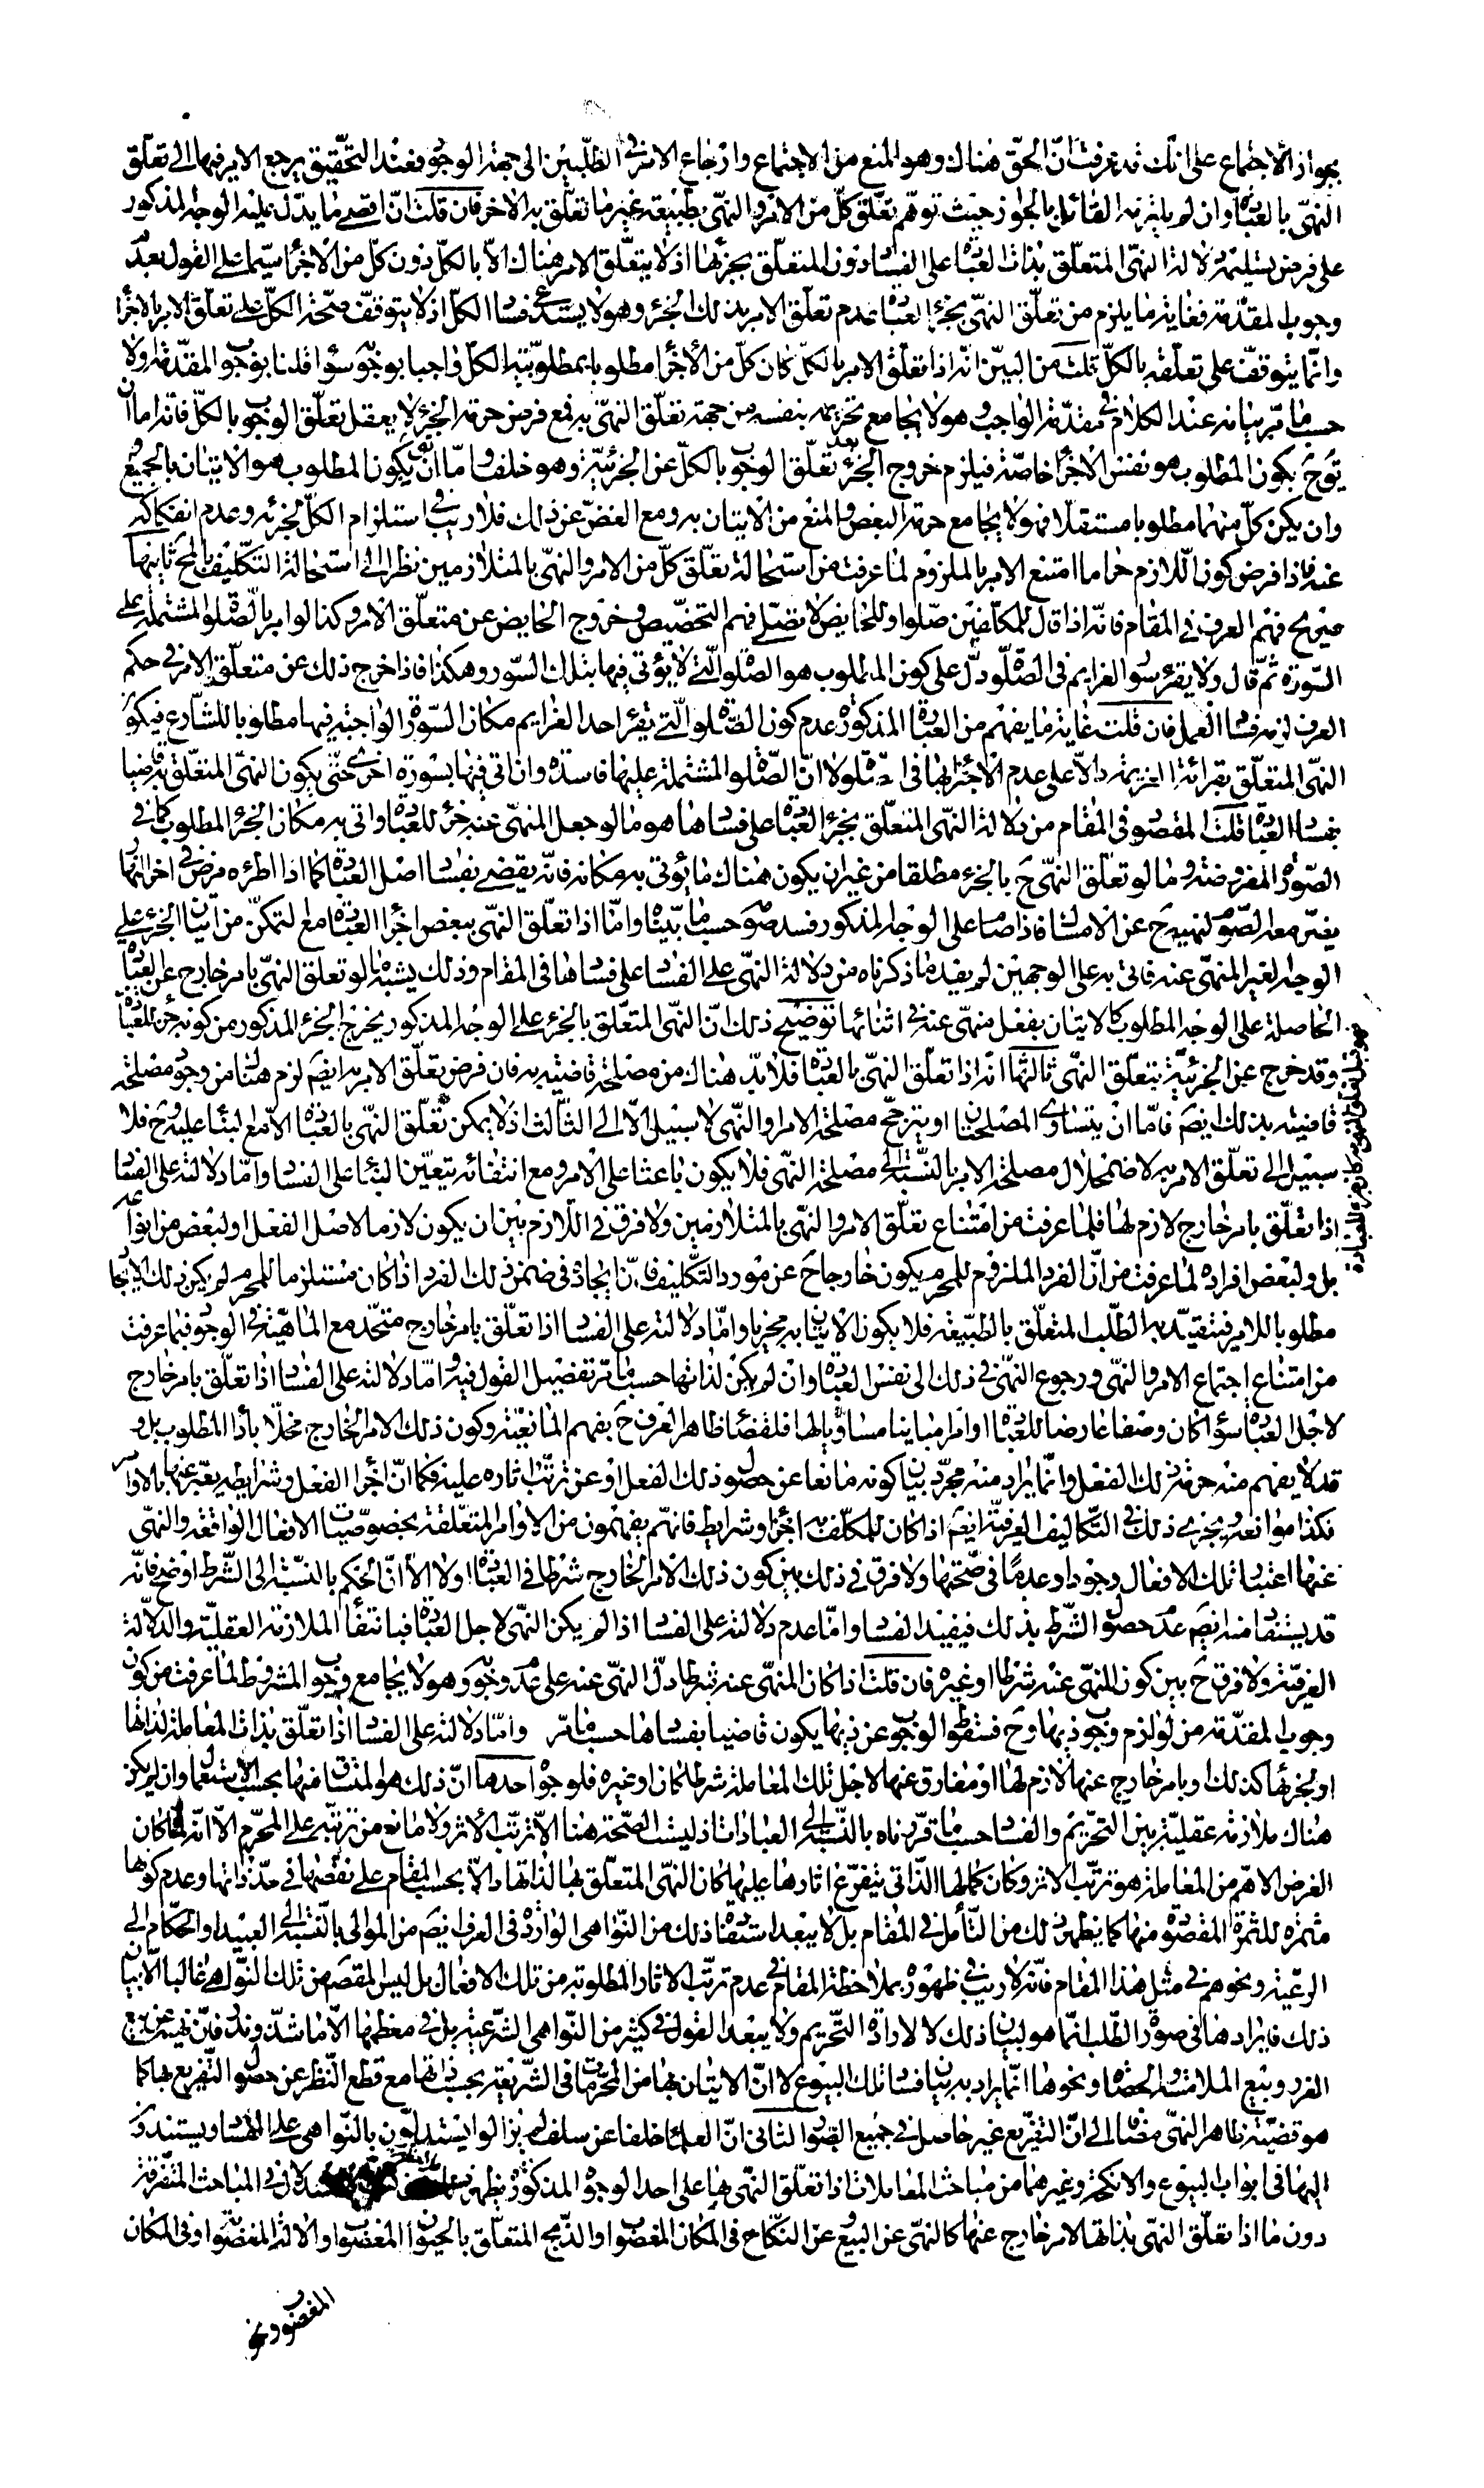 بجواز الاجتماع على انك قد عرفت انّ الحقّ هناك وهو المنع من الاجتماع وارجاع الامر فى الطلبين الى جهة الوجو فعند التحقيق يرجع الامر فيها الى تعلّق
النهى بالعبا وان لم يلتزمه القائل بالجواز حيث توهم تعلّق كلّ من الامر والنهى بطبيعة غير ما تعلّق به الاخر فان قلت انّ اقصى ما يدلّ عليه الوجه المذكور
على فرض تسليمه دلالة النهى المتعلّق بذات العبا على الفسا دون المتعلّق بجزئها اذ لا يتعلّق الامر هناك الّا بالكلّ دون كلّ من الاجزا سيّما على القول بعدم
وجوب المقدّمة فغاية ما يلزم من تعلّق النهى بجزء العبا عدم تعلّق الامر بذلك الجزء وهو لا يستدعى فسا الكلّ اذ لا يتوقّف صحّة الكلّ على تعلّق الامر بالاجزا
وانّما يتوقّف على تعلّقه بالكلّ قلت من البيّن انّه اذا تعلّق الامر بالكلّ كان كلّ من الاجزا مطلوبا بمطلوبيّة الكلّ واجبا بوجوبه سوا قلنا بوجو المقدّمة او لا
حسبما مرّ بيانه عند الكلام فى مقدّمة الواجب وهو لا يجامع تحريمه بنفسه من جهة تعلّق النهى به فمع فرض حرمة الجزء لا يعقل تعلّق الوجوب بالكلّ فانه اما ان
يكون المطلوب ح هو نفس الاجزا خاصّة فيلزم خروج الجزء بعد تعلّق الوجوب بالكلّ عن الجزئيّة وهو خلف وامّا ان يكون المطلوب هو الاتيان بالجميع
وان لم يكن كلّ منها مطلوبا مستقلّا فهو لا يجامع حرمة البعض والمنع من الاتيان به ومع الغضّ عن ذلك فلا ريب فى استلزام الكلّ لجزئه وعدم انفكاكه
عنه فاذا فرض كون اللّازم حراما امتنع الامر بالملزوم لما عرفت من استحالة تعلّق كلّ من الامر والنهى بالمتلازمين نظرا الى استحالة التكليف بالمح ثانيها
صريح فهم العرف فى المقام فانه اذا قال للمكلّفين صلّوا وللحايض لا تصلّى فهم التخصيص وخروج الحايض عن متعلّق الامر وكذا لو امر بالصّلو المشتملة على
السّورة ثمّ قال ولا يقرء سور العزايم فى الصّلو دلّ على كون المطلوب هو الصّلو الّتى لا يؤتى فيها بتلك السّور وهكذا فاذا خرج ذلك عن متعلّق الامر فى حكم
العرف لزمه فسا العمل فان قلت غاية ما يفهم من العبا المذكورة عدم كون الصّلو الّتى يقرء احد العزايم مكان السّورة الواجبة فيها مطلوبا للشارع فيكون
النهى المتعلّق بقرائة العزيمة دالّا على عدم الاجتزاء بها فى الصّلو لا انّ الصّلو المشتملة عليها فاسدة وان اتى فيها بسورة اخرى حتّى يكون النهى المتعلّق به قاضيا
بفسا العبا قلت المقصو فى المقام من دلالة النهى المتعلّق بجزء العبا على فسادها هو ما لو جعل المنهى عنه جزء للعبا واتى به مكان الجزء المطلوب كما فى
الصّورة المفروضة وما لو تعلّق النهى ح بالجزء مطلقا من غير ان يكون هناك ما يؤتى به مكانه فانّه يقضى بفسا اصل العبا كما اذا اطرء مرض فى اخر النهار
يضرّ معه الصّوم لنهيه ح عن الامساك فاذا صام على الوجه المذكور فسد صومه حسبما بيّناه وامّا اذا تعلّق النهى ببعض اجزا العبا مع التمكّن من اتيان الجزء على
الوجه الغير المنهى عنه فاتى به على الوجهين لم يفد ما ذكرناه من دلالة النهى على الفسا على فسادها فى المقام وذلك يشبه ما لو تعلق النهى بامر خارج عن العبا
الحاصلة على الوجه المطلوب كالاتيان بفعل منهى عنه فى اثنائها توضيح ذلك انّ النهى المتعلّق بالجزء على الوجه المذكور يخرج الجزء المذكور من كونه جزء للعبا
وقد خرج عن الجزئيّة بتعلّق النهى ثالثها انّه اذا تعلّق النهى بالعبا فلا بدّ هناك من مصلحة قاضية به فان فرض تعلّق الامر به ايضم لزم هناك من وجو مصلحة
قاضية بذلك ايضم فامّا ان يتساوى المصلحتان او يترجّح مصلحة الامر او النهى لا سبيل الّا الى الثالث اذ لا يمكن تعلّق النهى بالعبا الّا مع البناء عليه وح فلا
سبيل الى تعلّق الامر به لاضمحلال مصلحة الامر بالنّسبة الى مصلحة النهى فلا يكون باعثا على الامر ومع انتفائه يتعيّن البناء على الفسا وامّا دلالته على الفسا
اذا تعلّق بامر خارج لازم لها فلما عرفت من امتناع تعلّق الامر والنهى بالمتلازمين ولا فرق فى اللّازم بين ان يكون لازما لاصل الفعل او لبعض من انواعه
بل ولبعض افراده لما عرفت من انّ الفرد الملزوم للمحرم يكون خارجا ح عن مورد التكليف فانّ ايجاده فى ضمن ذلك الفرد اذا كان مستلزما للمحرم لم يكن ذلك الايجا
مطلوبا للامر فيتقيّد به الطّلب المتعلّق بالطّبيعة فلا يكون الاتيان به مجزيا وامّا دلالته على الفسا اذا تعلّق بامر خارج متّحد مع الماهيّة فى الوجو فبما عرفت
من امتناع اجتماع الامر والنهى ورجوع النهى فى ذلك الى نفس العبا وان لم يكن لذاتها حسبما مرّ تفصيل القول فيه وامّا دلالته على الفسا اذا تعلّق بامر خارج
لاجل العبا سوا كان وصفا عارضا للعبا او امرا مباينا مساويا لها فلقضاء ظاهر العرف ح بفهم المانعيّة وكون ذلك الامر الخارج مخلّا باداء المطلوب بل و
قد لا يفهم منه حرمة ذلك الفعل وانّما يراد منه مجرّد بيان كونه مانعا عن حصول ذلك الفعل او عن ترتّب اثاره عليه فكما انّ اجزا الفعل وشرايطه يعبّر عنها بالاوامر
فكذا موانعه ويجرى ذلك فى التكاليف العرفيّة ايضم اذا كان للمكلّف به اجزا وشرايط فانّهم يفهمون من الاوامر المتعلّقة بخصوصيّات الافعال الواقعة والنهى
عنها اعتبار تلك الافعال وجودا وعدما فى صحّتها ولا فرق فى ذلك بين كون ذلك الامر الخارج شرطا فى العبا او لا الّا انّ الحكم بالنسبة الى الشّرط اوضح فانّه
قد يستفاد منه ايضم عدم حصول الشّرط بذلك فيفيد الفسا وامّا عدم دلالته على الفسا اذا لم يكن النهى لاجل العبا فبانتفاء الملازمة العقليّة والدلالة
العرفيّة ولا فرق ح بين كون المنهى عنه شرطا او غيره فان قلت اذا كان المنهى عنه شرطا دلّ النهى عنه على عدم وجوبه وهو لا يجامع وجوب المشروط لما عرفت من كون
وجوب المقدّمة من لوازم وجوب ذيها وح فسقوط الوجوب عن ذيها يكون قاضيا بفسادها حسبما مرّ وامّا دلالته على الفسا اذا تعلّق بذات المعاملة لذاتها
او لجزئها كذلك او بامر خارج عنها لازم لها او مفارق عنها لاجل تلك المعاملة شرطا كان او غيره فلوجوه احدها انّ ذلك هو المنساق منها بحسب الاستعمال وان لم يكن
هناك ملازمة عقليّة بين التحريم والفسا حسبما قرّرناه بالنّسبة الى العبادات اذ ليست الصّحّة هنا الّا ترتّب الاثر ولا مانع من ترتّبه على المحرّم الّا انّه لمّا كان
الغرض الاهمّ من المعاملة هو ترتّب الاثر وكان كمالها الذّاتى بتفرّع اثارها عليها كان النهى المتعلّق بها لذاتها دالّا بحسب المقام على نقصها فى حدّ ذاتها وعدم كونها
مثمرة للثمرة المقصودة منها كما يظهر ذلك من التأمل فى المقام بل لا يبعد استفادة ذلك من النواهى الواردة فى العرف ايضم من الموالى بالنّسبة الى العبيد او الحكّام الى
الرعيّة ونحوهم فى مثل هذا المقام فانّه لا ريب فى ظهوره بملاحظة المقام فى عدم ترتّب الاثار المطلوبة من تلك الافعال بل ليس المقصود من تلك النواهى غالبا الّا بيان
ذلك فايرادها فى صورة الطّلب انّما هو لبيان ذلك لا لارادة التّحريم ولا يبعد القول فى كثير من النواهى الشّرعيّة بل فى معظمها الّا ما شذّ وندر فانّ نهيه عن بيع
الغرر وبيع الملامسة والحصاة ونحوها انّما يراد به بيان فسا تلك البيوع لا انّ الاتيان بها من المحرّمات فى الشّريعة بحسب ذاتها مع قطع النّظر عن حصول التّفريع بها كما
هو قضيّة ظاهر النهى مضافا الى انّ التفريع غير حاصل فى جميع الصّور الثانى انّ العلماء خلفا عن سلف لم يزالوا يستدلّون بالنّواهى على الفسا ويستندون
اليها فى ابواب البيوع والانكحة وغيرهما من مباحث المعاملات اذا تعلّق النهى بها على احد الوجوه المذكورة يظهر ذلك من فى المباحث المتفرّقة
دون ما اذا تعلّق النهى بذاتها لامر خارج عنها كالنهى عن البيع وعن النّكاح فى المكان المغصوب والذّبح المتعلّق بالحيوان المغصوب والالة المغصوبة او فى المكان
المغصوب ونحو
هو قبل تعلق النهى به كان جزء للعبادة